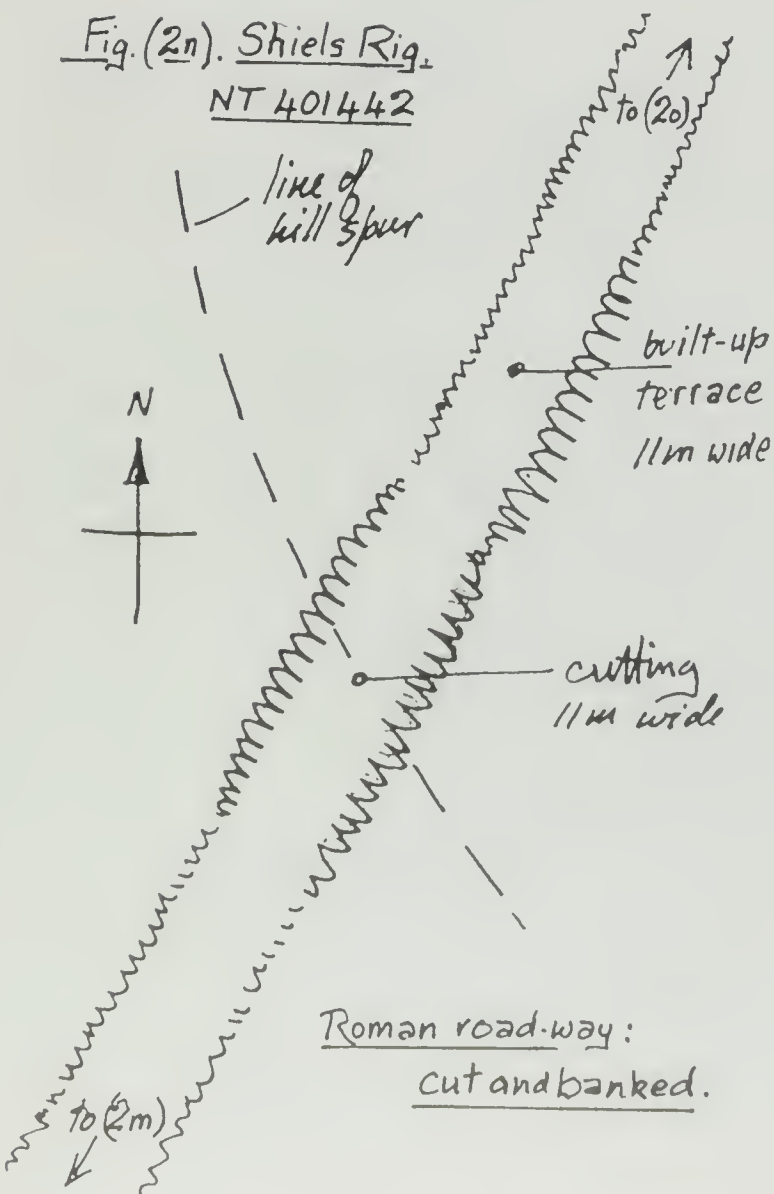 Fig. (2n). Shiels Rig.
NT 401442
to (2o)
line of
hill spur
built-up
terrace
11m wide
N
cutting
11m wide
Roman road-way:
cut and banked.
to (2m)